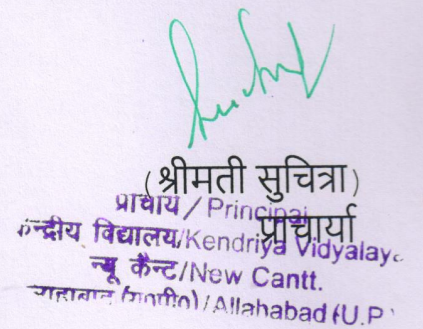 (श्रीमती सुचित्रा)
प्राचार्य / Principal
प्राचार्या
केन्द्रीय विद्यालय/Kendriya Vidyalaya
न्यू कैन्ट/New Cantt.
इलाहाबाद (उ०प्र०)/Allahabad (U.P.)